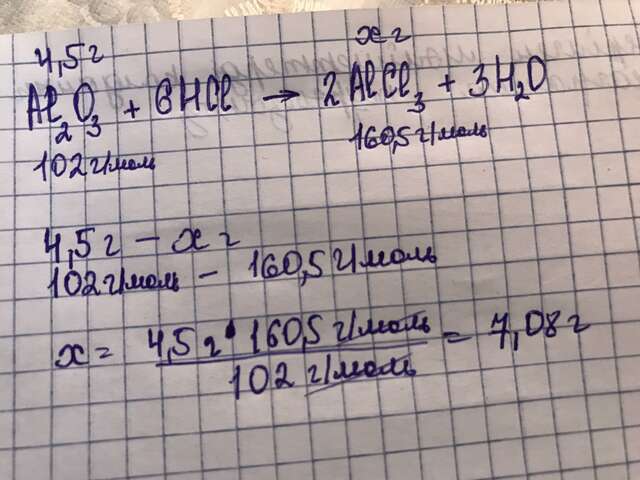 4,5г
xг
Al2O3 + 6HCl → 2AlCl3 + 3H2O
102г/моль
160,5г/моль
4,5г – xг
102г/моль – 160,5г/моль
x = 4,5г · 160,5г/моль = 7,08г
102г/моль